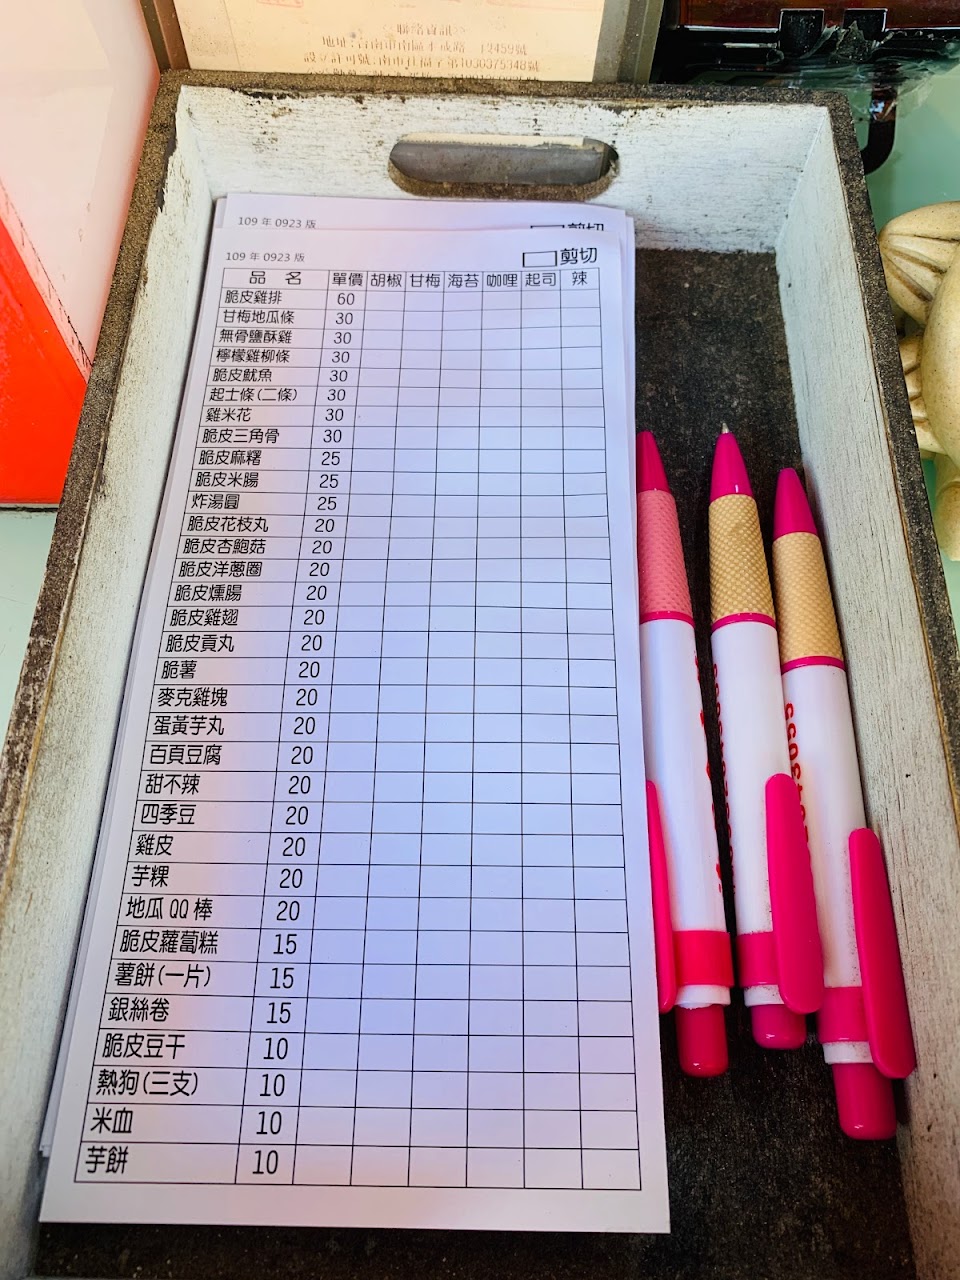 <聯絡資訊>
109 年 0923 版
剪切
109 年 0923 版
剪切
品 名 單價 胡椒 甘梅 海苔 咖哩 起司 辣
脆皮雞排 60
甘梅地瓜條 30
無骨鹽酥雞 30
檸檬雞柳條 30
脆皮魷魚 30
起士條(二條) 30
雞米花 30
脆皮三角骨 30
脆皮麻糬 25
脆皮米腸 25
炸湯圓 25
脆皮花枝丸 20
脆皮杏鮑菇 20
脆皮洋蔥圈 20
脆皮燻腸 20
脆皮雞翅 20
脆皮貢丸 20
脆薯 20
麥克雞塊 20
蛋黃芋丸 20
百頁豆腐 20
甜不辣 20
四季豆 20
雞皮 20
芋粿 20
地瓜QQ棒 20
脆皮蘿蔔糕 15
薯餅(一片) 15
銀絲卷 15
脆皮豆干 10
熱狗(三支) 10
米血 10
芋餅 10